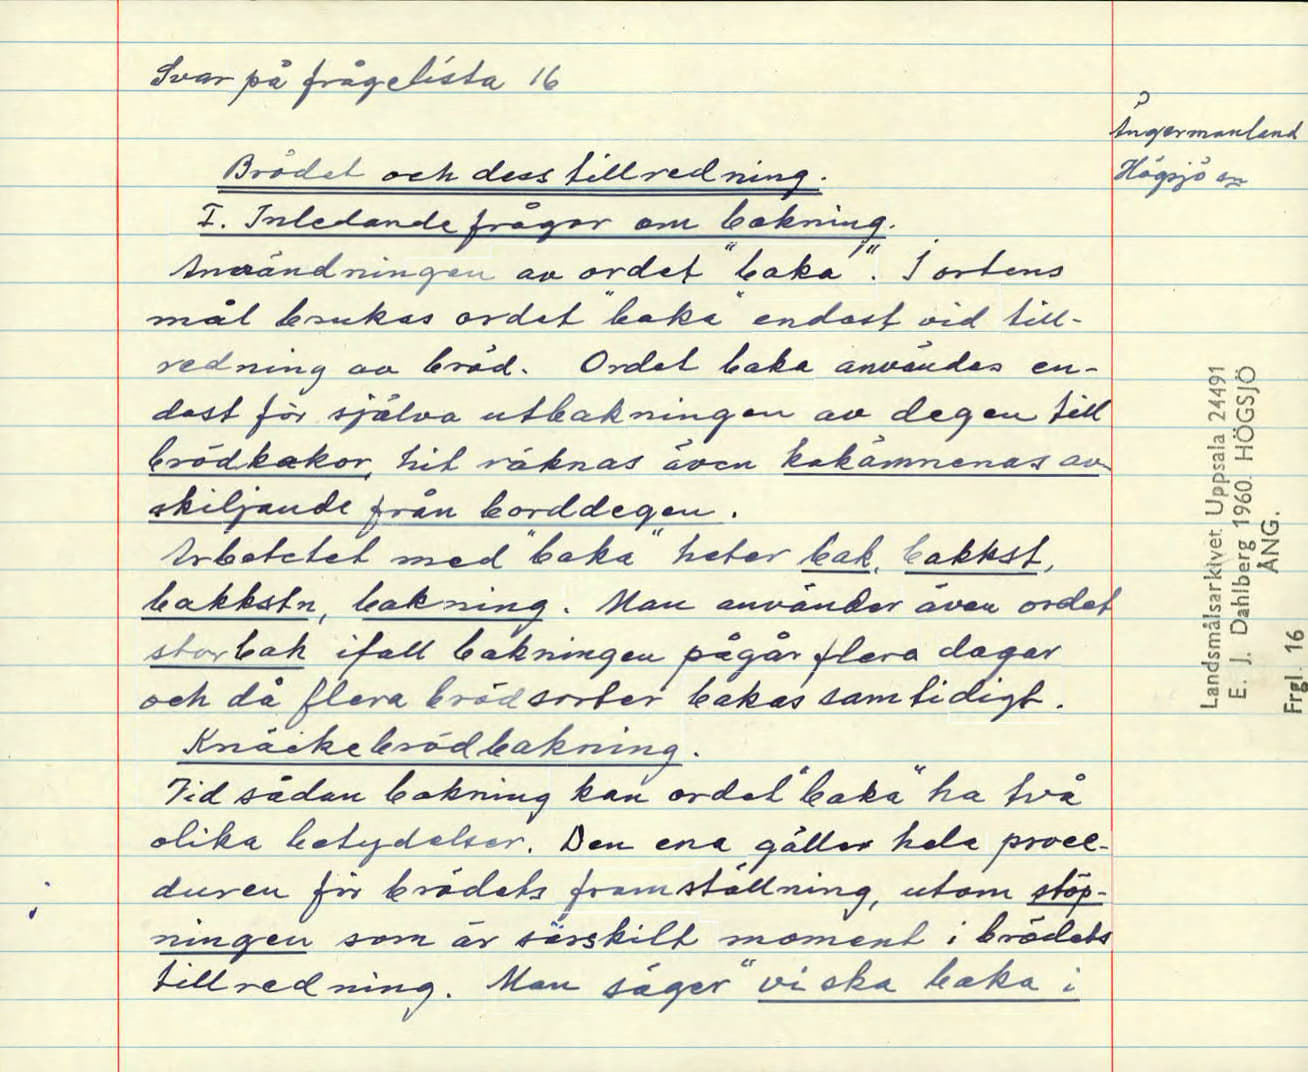 Svar på frågelista 16
Ångermanland
Högsjö sn
Brödet och dess tillredning.
I. Inledande frågor om bakning.
Användningen av ordet "baka". I ortens
mål brukas ordet "baka" endast vid till-
redning av bröd. Ordet baka användes en-
dast för själva utbakningen av degen till
brödkakor, hit räknas även kakämnenas av
skiljande från borddegen.
Arbetetet med "baka" heter bak, bakkst,
bakkstn, bakning. Man använder även ordet
storbak ifall bakningen pågår flera dagar
och då flera brödsorter bakas samtidigt.
Knäckebrödbakning.
Vid sådan bakning kan ordet "baka" ha två
olika betydelser. Den ena gäller hela proce-
duren för brödets framställning, utom stöp-
ningen som är särskilt moment i brödets
tillredning. Man säger "vi ska baka i
Landsmålsarkivet Uppsala 24491
E. J. Dahlberg 1960. HÖGSJÖ
ÅNG.
Frgl. 16